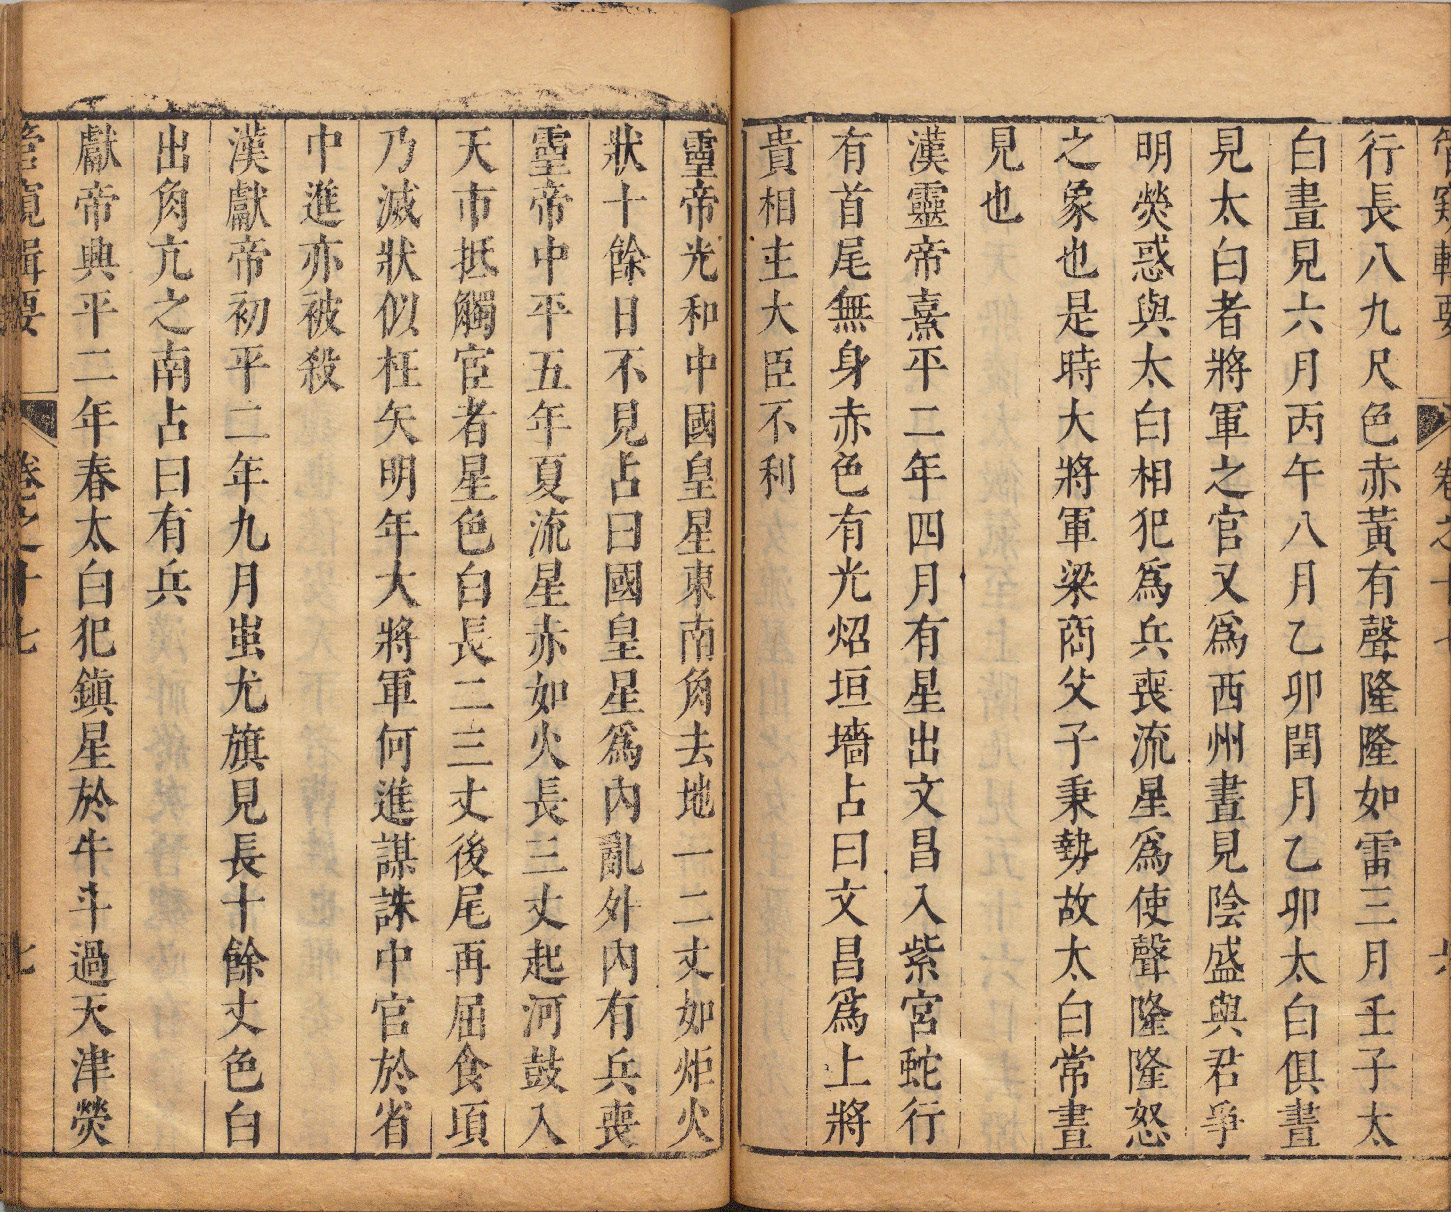 管窺輯要 卷之十七 六
行長八九尺色赤黃有聲隆隆如雷三月壬子太
白晝見六月丙午八月乙卯閏月乙卯太白俱晝
見太白者將軍之官又爲西州晝見陰盛與君爭
明熒惑與太白相犯爲兵喪流星爲使聲隆隆怒
之象也是時大將軍梁商父子秉勢故太白常晝
見也
漢靈帝熹平二年四月有星出文昌入紫宮蛇行
有首尾無身赤色有光炤垣墻占曰文昌爲上將
貴相主大臣不利
靈帝光和中國皇星東南角去地一二丈如炬火
狀十餘日不見占曰國皇星爲內亂外內有兵喪
靈帝中平五年夏流星赤如火長三丈起河鼓入
天市抵觸宦者星色白長二三丈後尾再屈食頃
乃滅狀似枉矢明年大將軍何進謀誅中官於省
中進亦被殺
漢獻帝初平二年九月蚩尤旗見長十餘丈色白
出角亢之南占曰有兵
獻帝興平二年春太白犯鎭星於牛斗過天津熒
管窺輯要 卷之十七 七